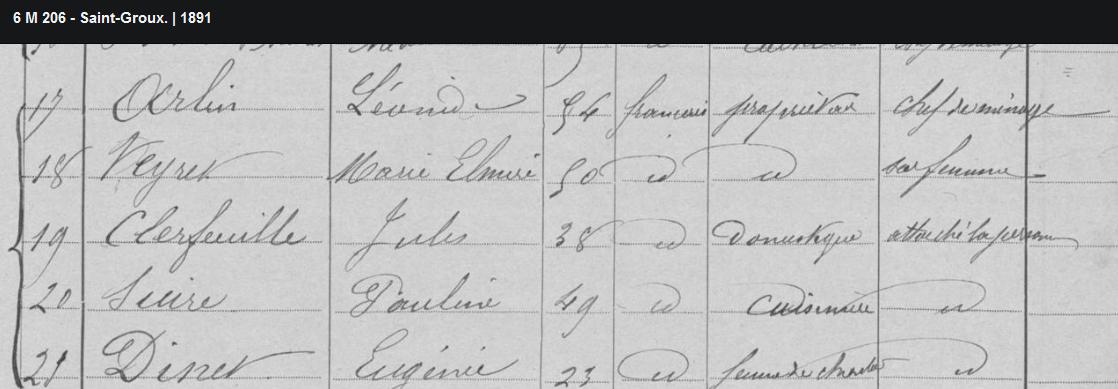 6 M 206 - Saint-Groux. | 1891
17 Orlin Léonide 54 français propriétaire chef de ménage
18 Veyret Marie Elmire 50 id id sa femme
19 Clerfeuille Jules 38 id Domestique attaché la personne
20 Suire Pauline 49 id Cuisinière id
21 Dinet Eugénie 23 id femme de chambre id